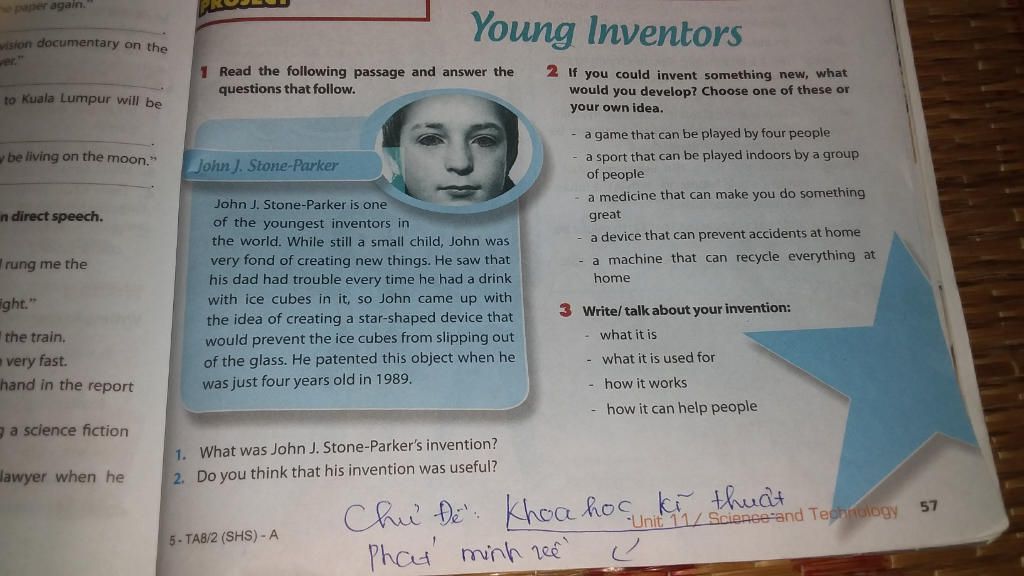 e paper again."
vision documentary on the
ver."
to Kuala Lumpur will be
y be living on the moon."
n direct speech.
rung me the
ight."
the train.
very fast.
hand in the report
g a science fiction
lawyer when he
PROJECT
Young Inventors
1 Read the following passage and answer the
questions that follow.
John J. Stone-Parker
John J. Stone-Parker is one
of the youngest inventors in
the world. While still a small child, John was
very fond of creating new things. He saw that
his dad had trouble every time he had a drink
with ice cubes in it, so John came up with
the idea of creating a star-shaped device that
would prevent the ice cubes from slipping out
of the glass. He patented this object when he
was just four years old in 1989.
1. What was John J. Stone-Parker's invention?
2. Do you think that his invention was useful?
2 If you could invent something new, what
would you develop? Choose one of these or
your own idea.
- a game that can be played by four people
- a sport that can be played indoors by a group
of people
- a medicine that can make you do something
great
- a device that can prevent accidents at home
- a machine that can recycle everything at
home
3 Write/ talk about your invention:
- what it is
- what it is used for
- how it works
- how it can help people
Chủ Đề: Khoa học kĩ thuật
Phát minh
5 - TA8/2 (SHS) - A
Unit 11/ Science and Technology
57